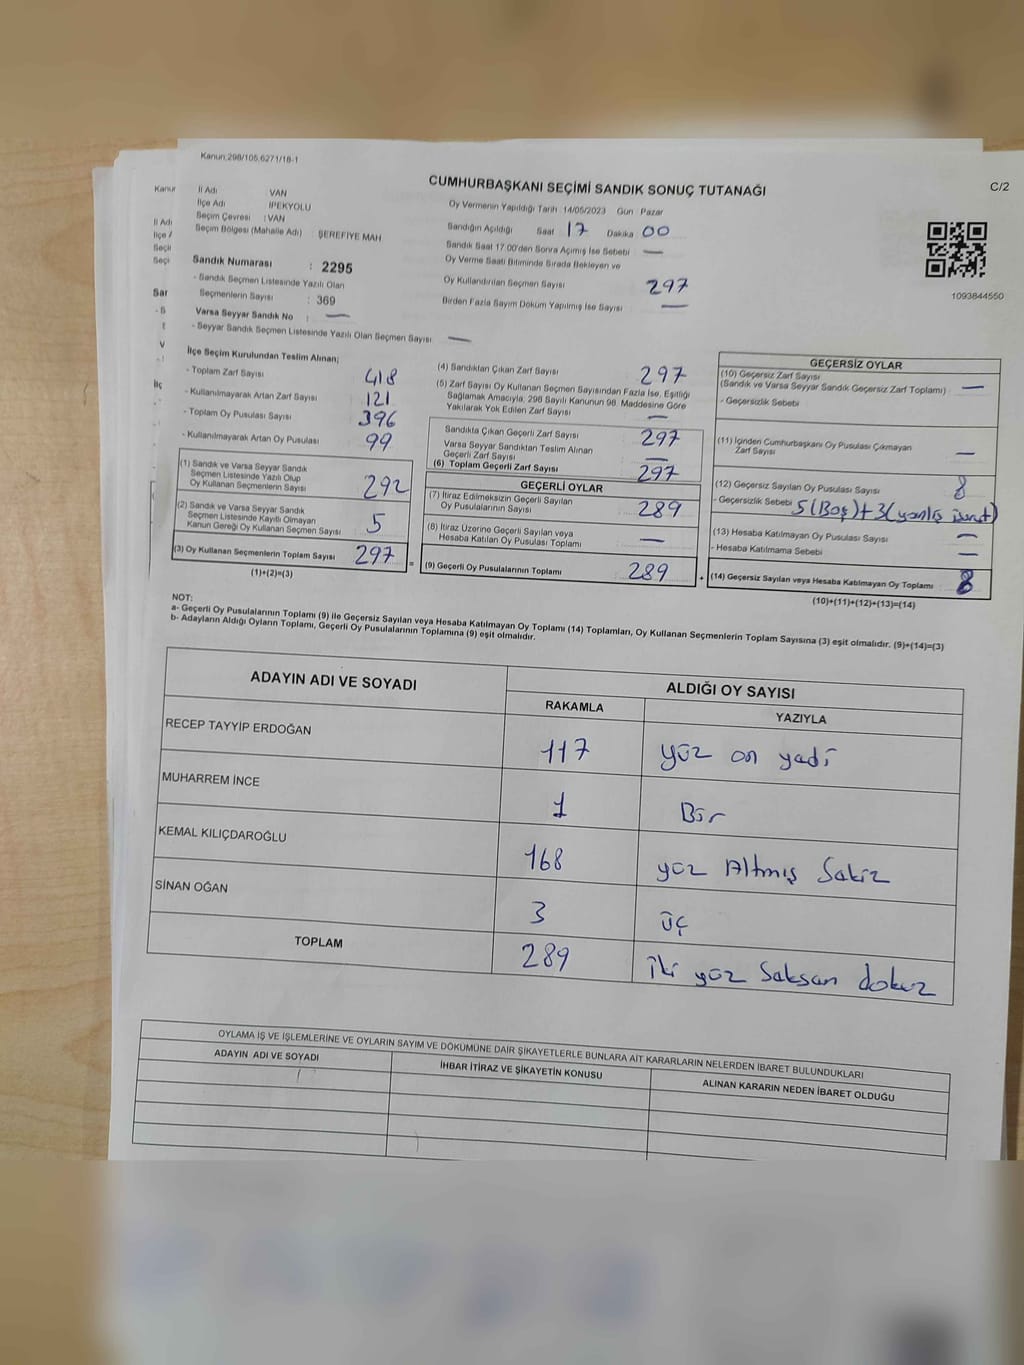 Kanun:298/105,6271/18-1
CUMHURBAŞKANI SEÇİMİ SANDIK SONUÇ TUTANAĞI
C/2
İl Adı VAN
İlçe Adı İPEKYOLU
Seçim Çevresi : VAN
Seçim Bölgesi (Mahalle Adı) : ŞEREFİYE MAH
Oy Vermenin Yapıldığı Tarih 14/05/2023 Gün Pazar
Sandığın Açıldığı Saat 17 Dakika 00
Sandık Saat 17.00'den Sonra Açımış İse Sebebi —
Oy Verme Saati Bitiminde Sırada Bekleyen ve
Oy Kullandırılan Seçmen Sayısı 297
Birden Fazla Sayım Döküm Yapılmış İse Sayısı —
1093844550
Sandık Numarası : 2295
- Sandık Seçmen Listesinde Yazılı Olan
Seçmenlerin Sayısı : 369
Varsa Seyyar Sandık No : —
- Seyyar Sandık Seçmen Listesinde Yazılı Olan Seçmen Sayısı —
İlçe Seçim Kurulundan Teslim Alınan;
- Toplam Zarf Sayısı 418
- Kullanılmayarak Artan Zarf Sayısı 121
- Toplam Oy Pusulası Sayısı 396
- Kullanılmayarak Artan Oy Pusulası 99
(1) Sandık ve Varsa Seyyar Sandık
Seçmen Listesinde Yazılı Olup
Oy Kullanan Seçmenlerin Sayısı 292
(2) Sandık ve Varsa Seyyar Sandık
Seçmen Listesinde Kayıtlı Olmayan
Kanun Gereği Oy Kullanan Seçmen Sayısı 5
(3) Oy Kullanan Seçmenlerin Toplam Sayısı 297
(1)+(2)=(3)
(4) Sandıktan Çıkan Zarf Sayısı 297
(5) Zarf Sayısı Oy Kullanan Seçmen Sayısından Fazla İse, Eşitliği
Sağlamak Amacıyla, 298 Sayılı Kanunun 98. Maddesine Göre
Yakılarak Yok Edilen Zarf Sayısı —
Sandıkta Çıkan Geçerli Zarf Sayısı 297
Varsa Seyyar Sandıktan Teslim Alınan
Geçerli Zarf Sayısı —
(6) Toplam Geçerli Zarf Sayısı 297
GEÇERLİ OYLAR
(7) İtiraz Edilmeksizin Geçerli Sayılan
Oy Pusulalarının Sayısı 289
(8) İtiraz Üzerine Geçerli Sayılan veya
Hesaba Katılan Oy Pusulası Toplamı —
= (9) Geçerli Oy Pusulalarının Toplamı 289
GEÇERSİZ OYLAR
(10) Geçersiz Zarf Sayısı
(Sandık ve Varsa Seyyar Sandık Geçersiz Zarf Toplamı) —
- Geçersizlik Sebebi
(11) İçinden Cumhurbaşkanı Oy Pusulası Çıkmayan
Zarf Sayısı —
(12) Geçersiz Sayılan Oy Pusulası Sayısı 8
- Geçersizlik Sebebi 5 (Boş) + 3 (yanlış
(13) Hesaba Katılmayan Oy Pusulası Sayısı —
- Hesaba Katılmama Sebebi —
+ (14) Geçersiz Sayılan veya Hesaba Katılmayan Oy Toplamı 8
(10)+(11)+(12)+(13)=(14)
NOT:
a- Geçerli Oy Pusulalarının Toplamı (9) ile Geçersiz Sayılan veya Hesaba Katılmayan Oy Toplamı (14) Toplamları, Oy Kullanan Seçmenlerin Toplam Sayısına (3) eşit olmalıdır. (9)+(14)=(3)
b- Adayların Aldığı Oyların Toplamı, Geçerli Oy Pusulalarının Toplamına (9) eşit olmalıdır.
ADAYIN ADI VE SOYADI
ALDIĞI OY SAYISI
RAKAMLA YAZIYLA
RECEP TAYYİP ERDOĞAN 117 yüz on yadi
MUHARREM İNCE 1 Bir
KEMAL KILIÇDAROĞLU 168 yüz Altmış Sakiz
SİNAN OĞAN 3 üç
TOPLAM 289 iki yüz Saksan dokuz
OYLAMA İŞ VE İŞLEMLERİNE VE OYLARIN SAYIM VE DÖKÜMÜNE DAİR ŞİKAYETLERLE BUNLARA AİT KARARLARIN NELERDEN İBARET BULUNDUKLARI
ADAYIN ADI VE SOYADI
İHBAR İTİRAZ VE ŞİKAYETİN KONUSU
ALINAN KARARIN NEDEN İBARET OLDUĞU